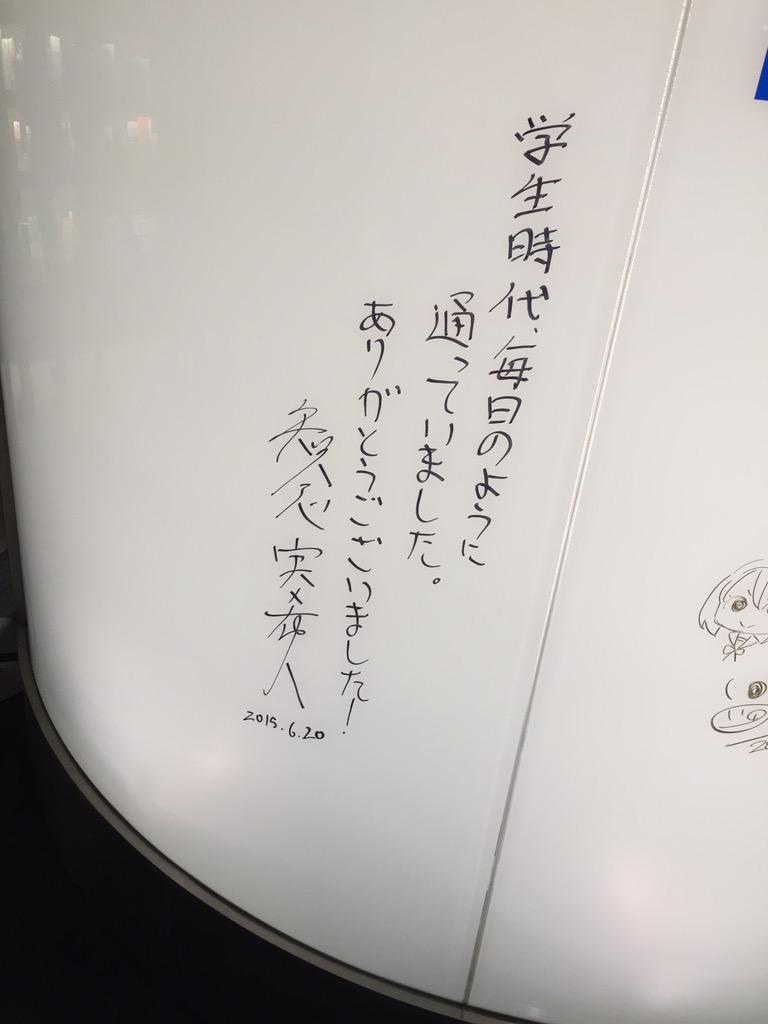 学生時代、毎日のように
通っていました。
ありがとうございました！
知念実希人
2015.6.20